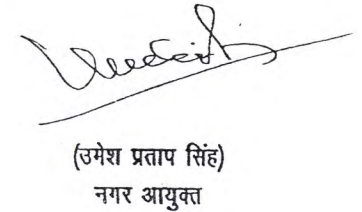 (उमेश प्रताप सिंह)
नगर आयुक्त